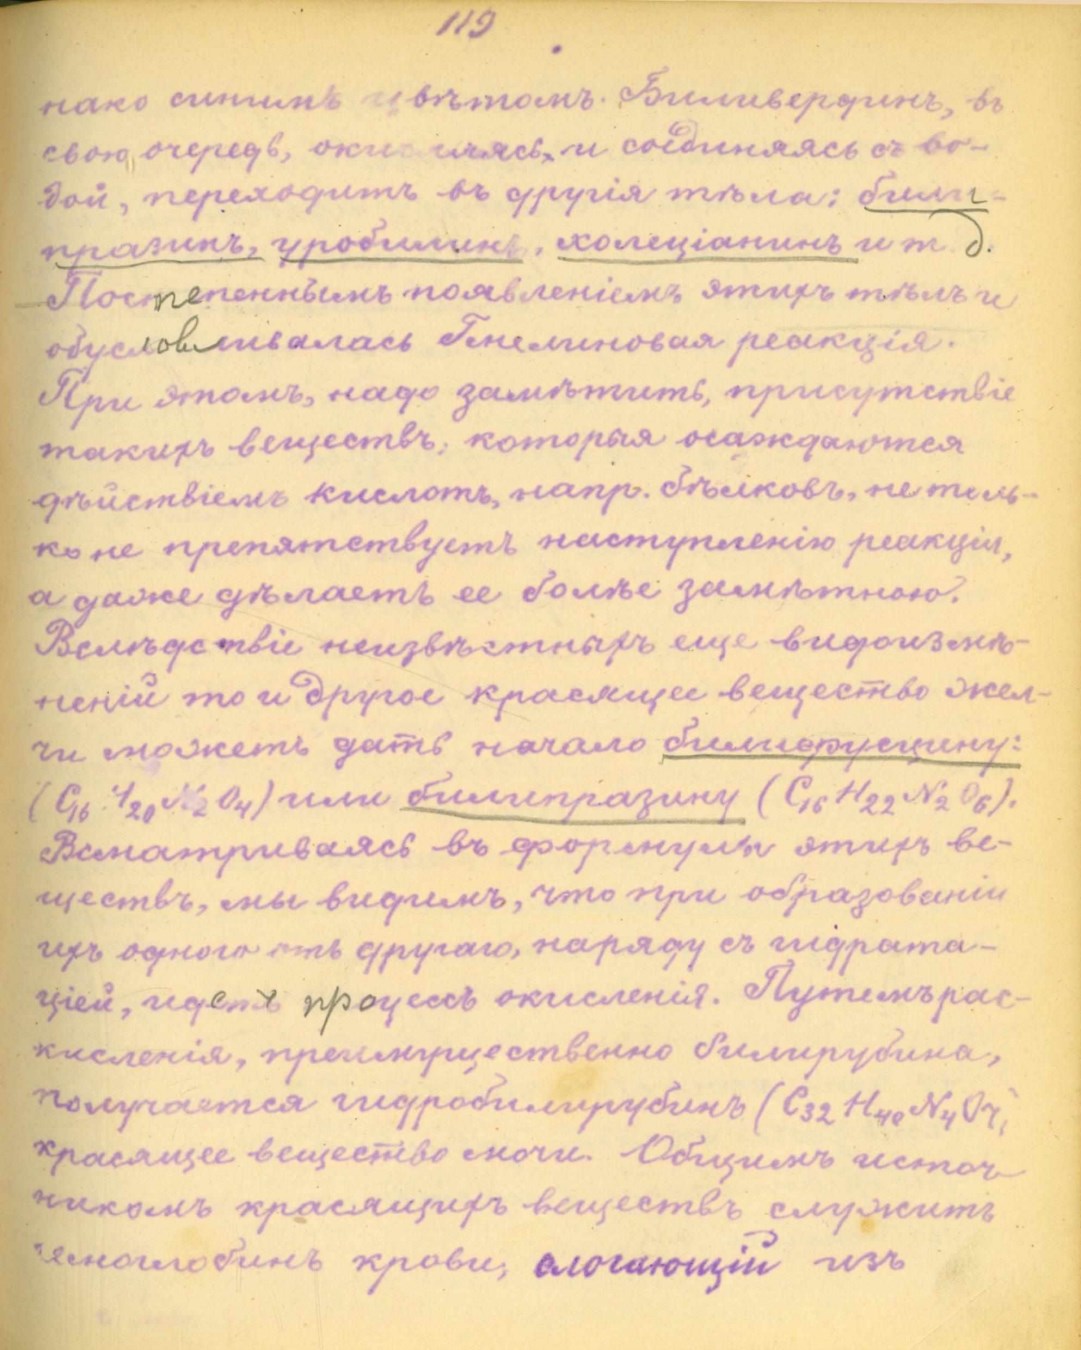 119
нако синимъ цвѣтомъ. Биливердинъ, въ
свою очередь, окисляясь и соединяясь съ во-
дой, переходитъ въ другія тѣла: били-
празинъ, уробилинъ, холеціанинъ и т. д.
Постепеннымъ появленіемъ этихъ тѣлъ и
обусловливалась Гмелиновая реакція.
При этомъ, надо замѣтить, присутствіе
такихъ веществъ, которыя осаждаются
дѣйствіемъ кислотъ, напр. бѣлковъ, не толь-
ко не препятствуетъ наступленію реакціи,
а даже дѣлаетъ ее болѣе замѣтною.
Вслѣдствіе неизвѣстныхъ еще видоизмѣ-
неній то и другое красящее вещество жел-
чи можетъ дать начало билифусцину:
(C16 H20 N2 O4) или билипразину (C16 H22 N2 O6).
Всматриваясь въ формулы этихъ ве-
ществъ, мы видимъ, что при образованіи
ихъ одного отъ другаго, наряду съ гидрата-
ціей, идетъ процессъ окисленія. Путемъ рас-
кисленія, преимущественно билирубина,
получается гидробилирубинъ (C32 H40 N4 O7),
красящее вещество мочи. Общимъ источ-
никомъ красящихъ веществъ служитъ
гемоглобинъ крови, слогающій изъ